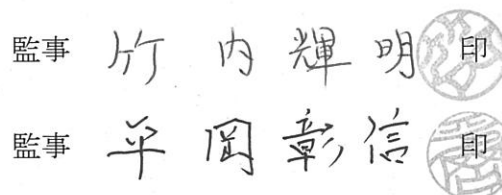 監事 竹内輝明 印
監事 平岡彰信 印